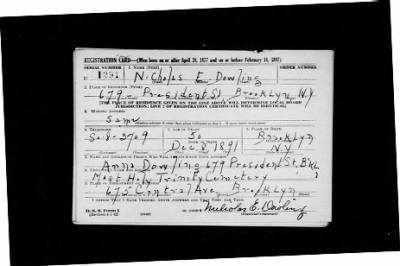 REGISTRATION CARD—(Men born on or after April 28, 1877 and on or before February 16, 1897)
SERIAL NUMBER 1. NAME (Print) ORDER NUMBER
U 1291 Nicholas E Dowling
2. PLACE OF RESIDENCE (Print)
679 - President St Brooklyn N.Y
(THE PLACE OF RESIDENCE GIVEN ON THE LINE ABOVE WILL DETERMINE LOCAL BOARD
JURISDICTION; LINE 2 OF REGISTRATION CERTIFICATE WILL BE IDENTICAL)
3. MAILING ADDRESS
Same
4. TELEPHONE 5. AGE IN YEARS 6. PLACE OF BIRTH
So. 8-2709 50 Brooklyn
DATE OF BIRTH
Dec 8 1891 N.Y
7. NAME AND ADDRESS OF PERSON WHO WILL ALWAYS KNOW YOUR ADDRESS
Anna Dowling 679 President St. B'klyn
8. EMPLOYER'S NAME AND ADDRESS
Most Holy Trinity Cemetery
9. PLACE OF EMPLOYMENT OR BUSINESS
675 Central Ave. Brooklyn
I AFFIRM THAT I HAVE VERIFIED ABOVE ANSWERS AND THAT THEY ARE TRUE.
D. S. S. Form 1
Nicholas E. Dowling